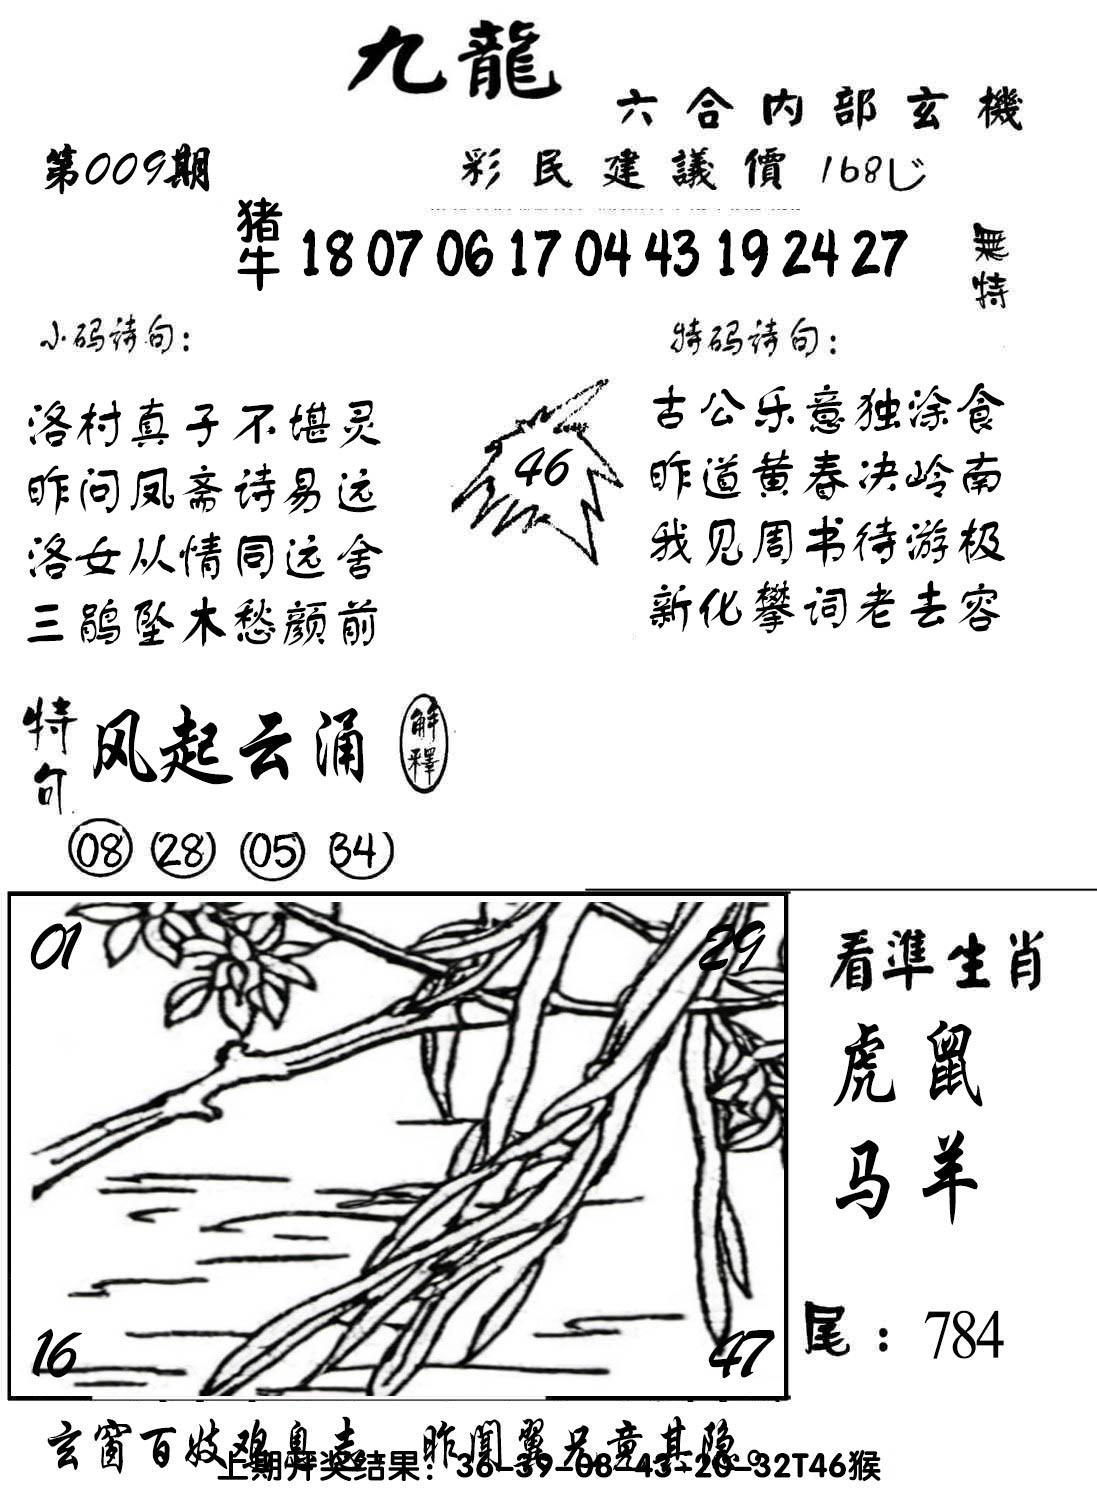 九龍
六合内部玄機
第009期
彩民建議價 168
猪牛 18 07 06 17 04 43 19 24 27
無特
小码诗句：
洛村真子不堪灵
昨问凤斋诗易远
洛女从情同远舍
三鹃坠木愁颜前
46
特码诗句：
古公乐意独涂食
昨道黄春决岭南
我见周书待游极
新化攀词老去容
特句 风起云涌 解釋
08 28 05 34
01 29
16 47
看準生肖
虎鼠
马羊
尾：784
玄窗百妓鸡息 昨聞翼兄童其隐。
上期开奖结果：36-39-08-43-20-32T46猴